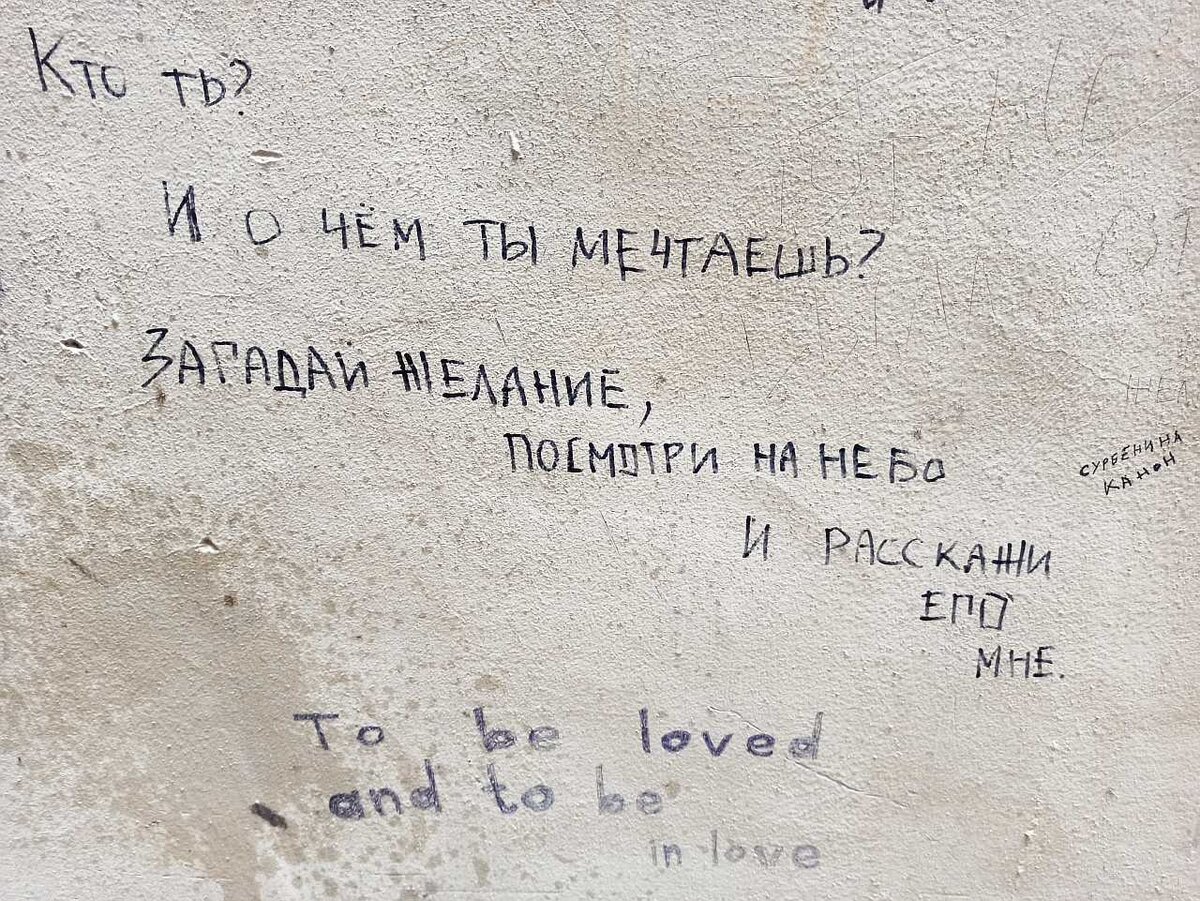 Кто ты?
И о чём ты мечтаешь?
Загадай желание,
посмотри на небо
и расскажи
его
мне.
сурбенина
канон
To be loved
and to be
in love